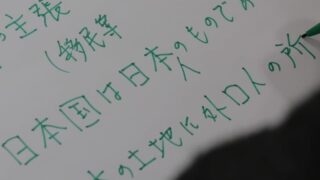 の主張
(移民等
日本国は日本人のものであ
の土地に外口人の所